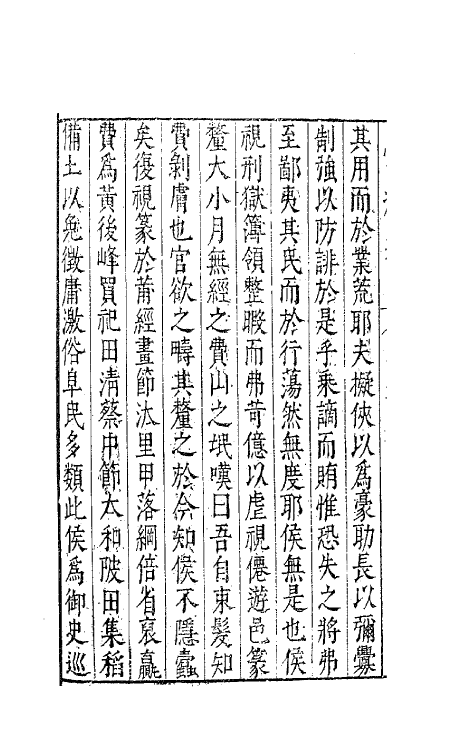 其用而於業荒耶夫擬俠以爲豪助長以彌釁
制強以防誹於是乎乘謫而賄惟恐失之將弗
至鄙夷其民而於行蕩然無度耶侯無是也侯
視刑獄簿領整暇而弗苛億以虛視僊遊邑篆
釐大小月無經之費山之氓嘆曰吾自束髮知
費剝膚也官欲之疇其釐之於今知侯不隱蠹
矣復視篆於莆經畫節汰里甲落綱倍省裒羸
費爲黃後峰買祀田清蔡中節太和陂田集稻
備土以免徵庸激俗阜民多類此侯爲御史巡